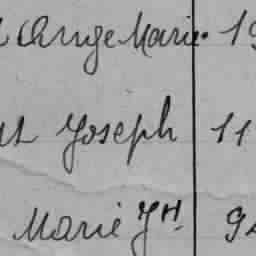 Ange Marie. 19
Joseph 11
Marie JH. 94